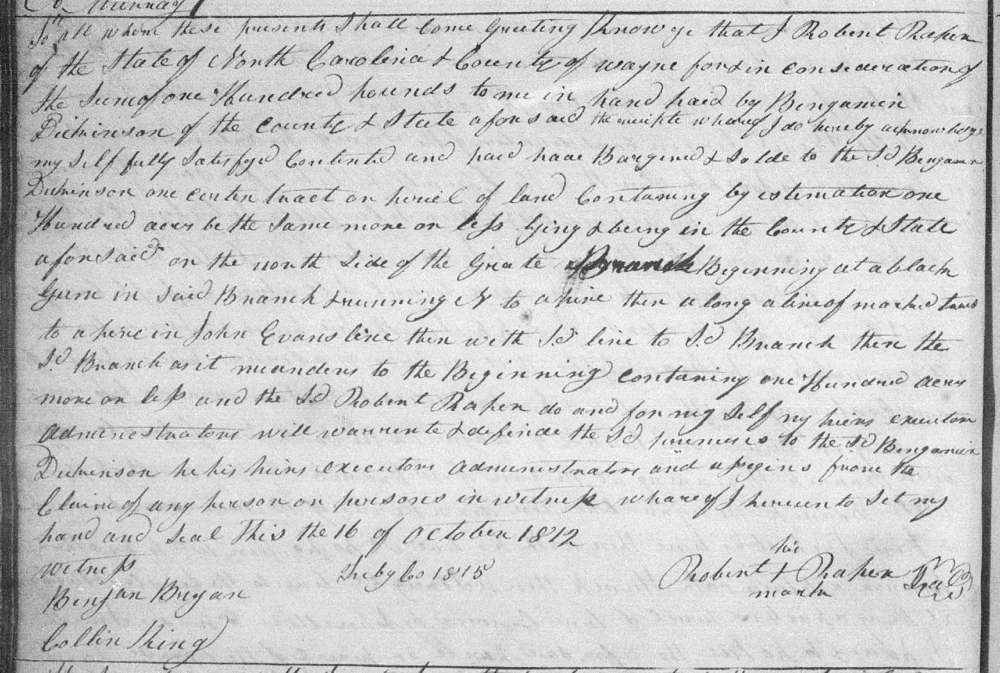 To all whom these presents Shall Come Greeting Know ye that I Robert Raper
of the State of North Carolina & County of wayne for & in consideration of
the Sum of one Hundred pounds to me in hand paid by Bengamin
Dickinson of the County & State afore said the whareof I do hereby acknowledge
my Self fully Satisfyd Contented and paid have Bargined & Solde to the Sd Bengamin
Dickinson one certen tract or percel of land Contaning by estemation one
Hundred acers be the Same more or less lying & being in the County & State
afore said on the north Side of the Greate Branch Beginning at a black
Gum in said Branch & running N to a pine then a long a line of marked trees
to a pine in John Evans line then with Sd line to Sd Branch then the
Sd Branch as it meanders to the Beginning contaning one Hundred acers
more or less and the Sd Robert Raper do and for my Self my heirs executors
administrators will warrente & defende the Sd premeses to the Sd Bengamin
Dickinson he his heirs executors administrators and assigins from the
Claim of any person or persons in witness whareof I hereunto Set my
hand and Seal This the 16 of October 1812
his
witness 1815 Robert + Raper Seal
mark
Benjan Bryan
Collin King